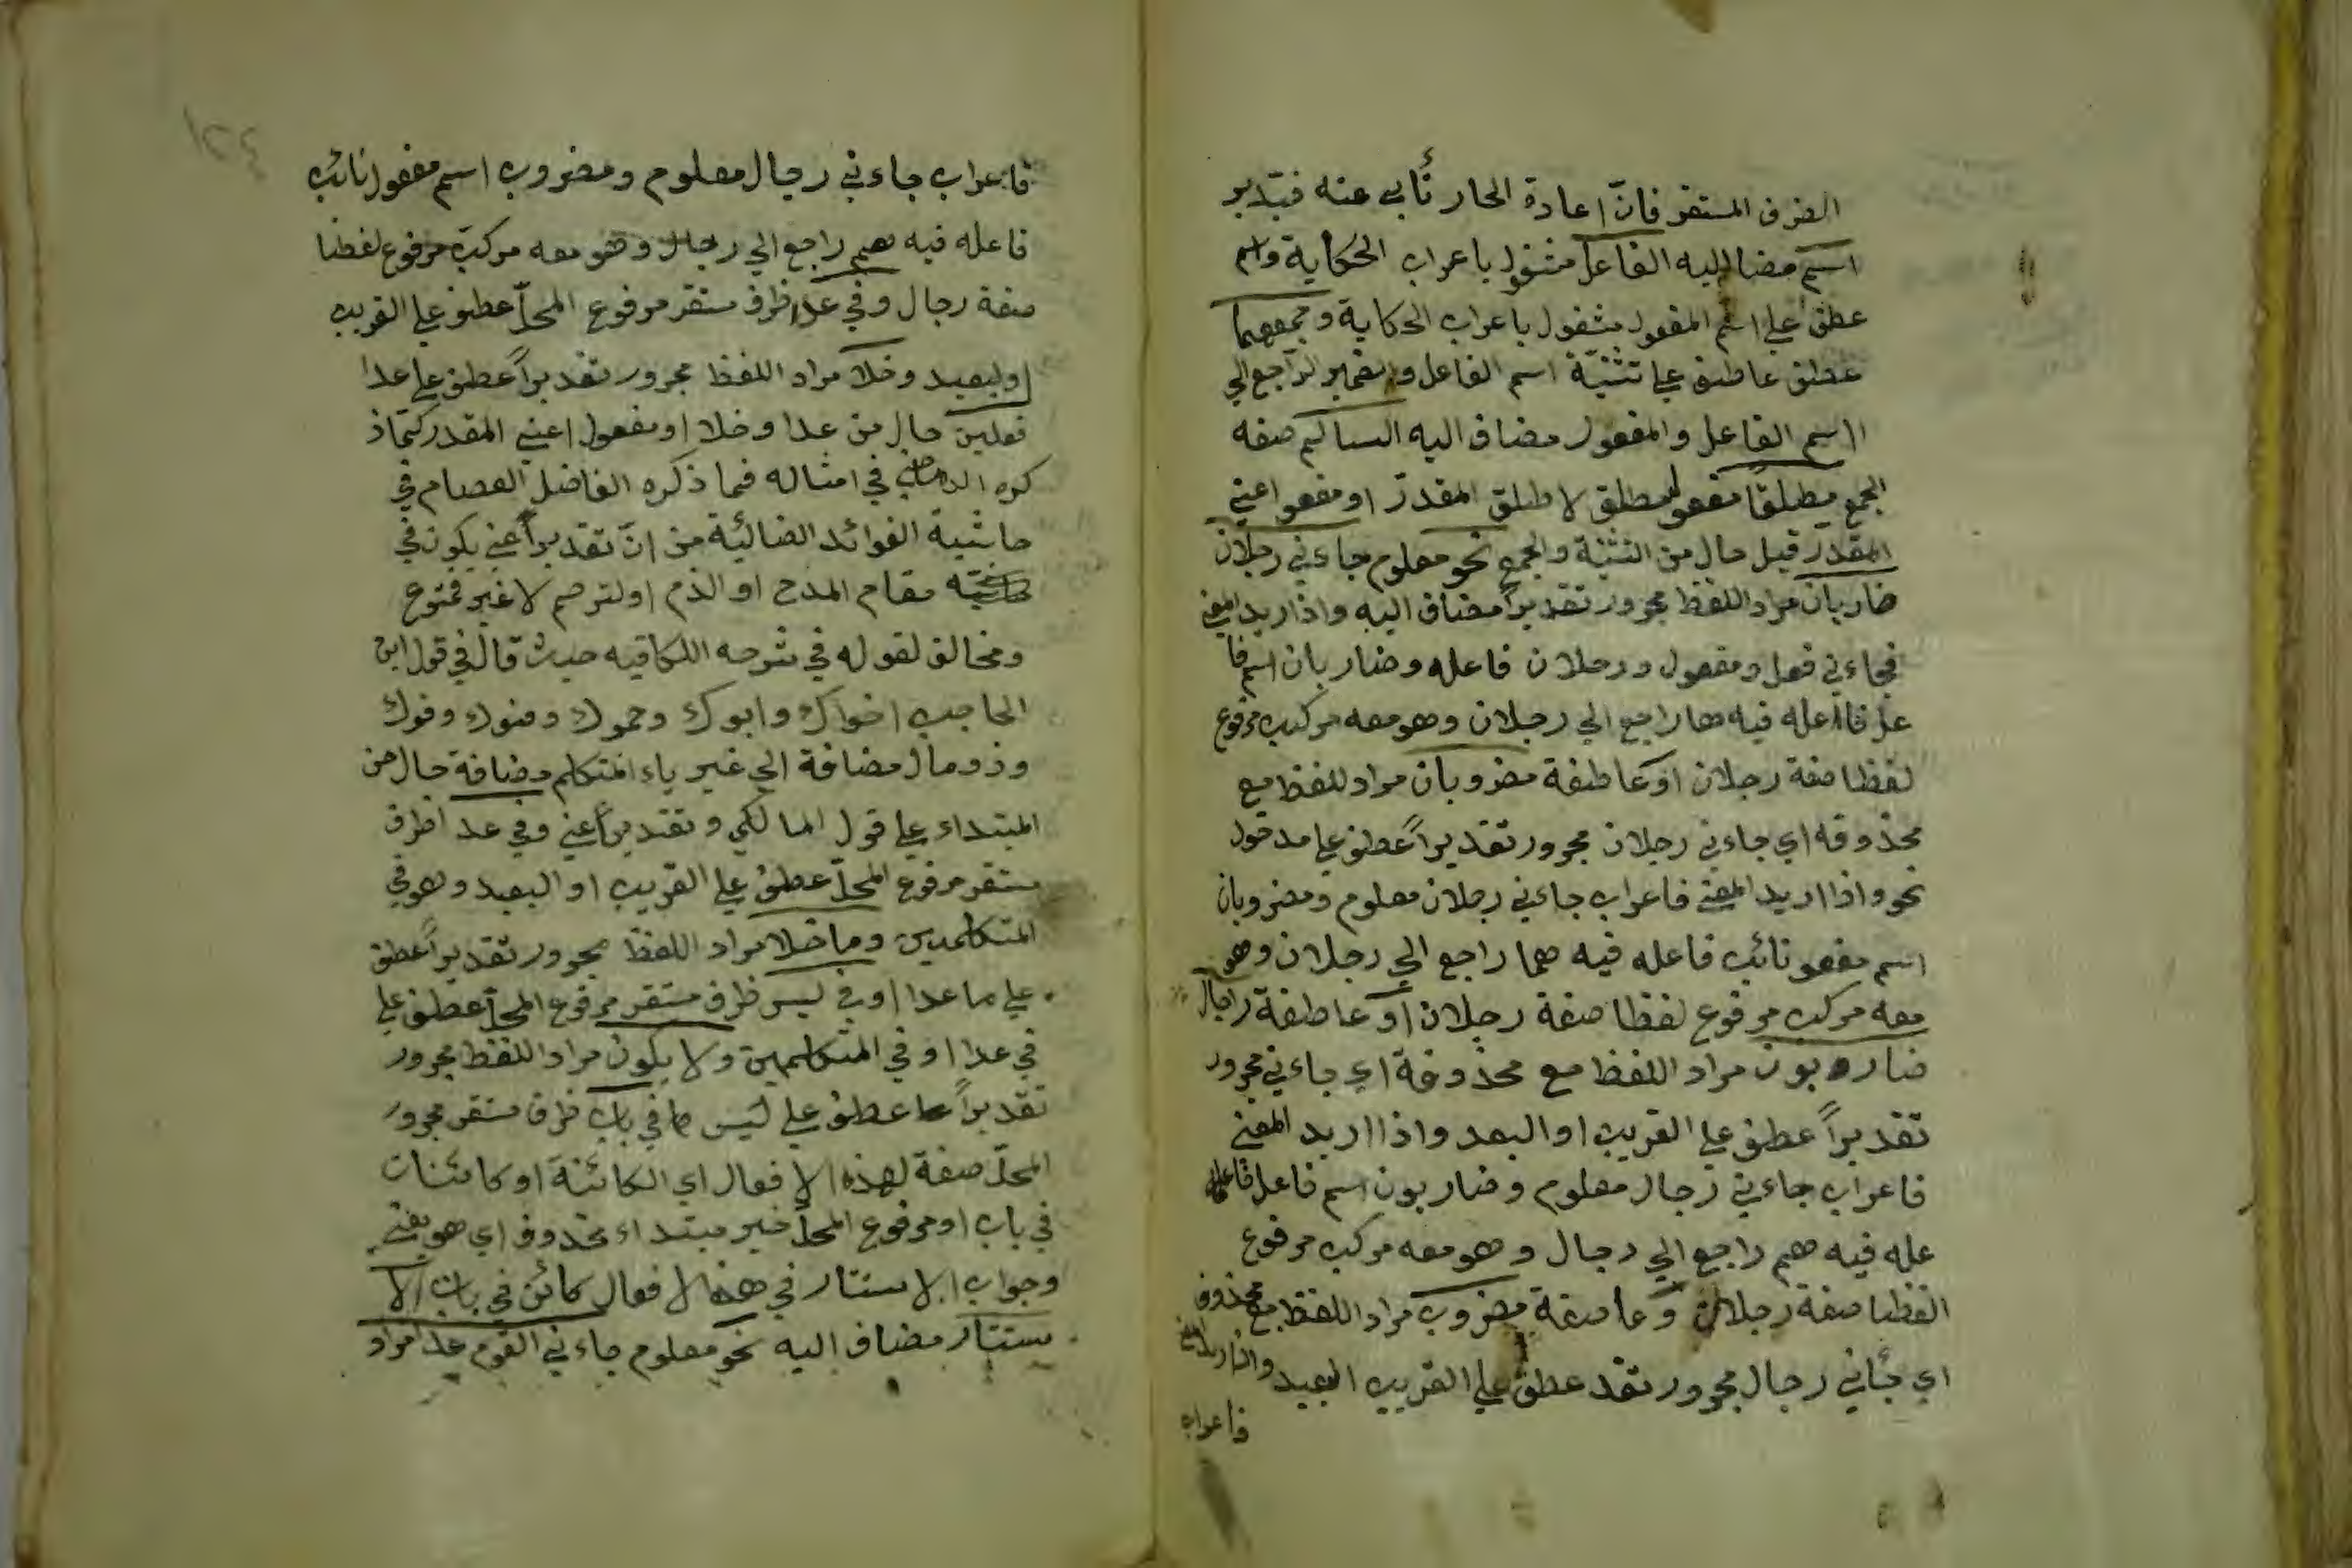 الظرف المستقر فانّ اعادة الجار تأبى عنه فتدبر
اسم مضا اليه الفاعل مشغول باعراب الحكاية واسم
عطف على اسم المفعول مشغول باعراب الحكاية وجمعهما
عطف عاطف على تثنيّة اسم الفاعل والضمير الراجع الي
الاسم الفاعل والمفعول مضاف اليه السالم صفه
الجمع مطلقًا مفعول مطلق لاطلق المقدر او مفعو اعني
المقدر قيل حال من التثنية والجمع نحو معلوم جاءني رجلان
ضاربان مراد اللفظ مجرور تقديراً مضاف اليه واذا اريد المعني
فجاءني فعل ومفعول ورجلان فاعله وضاربان اسم فا
عل فاعله فيه هما راجع الي رجلان وهو معه مركب مرفوع
لفظا صفة رجلان او عاطفة مضروبان مراد للفظ مع
محذوفه اي جاءني رجلان مجرور تقديراً عطف علي مدخول
نحو واذا اريد المعني فاعراب جاءني رجلان معلوم ومضروبان
اسم مفعو نائب فاعله فيه هما راجع الي رجلان وهو
معه مركب مرفوع لفظا صفة رجلان او عاطفة رجال
ضاربون مراد اللفظ مع محذوفة اي جاءني مجرور
تقديراً عطف علي القريب او البعد واذا اريد المعني
فاعراب جاءني رجال معلوم وضاربون اسم فاعل فا
عله فيه هم راجع الي رجال وهو معه مركب مرفوع
الفظا صفة رجلان وعاصفة مضروب مراد اللفظ مع محذوف
اي جئاني رجال مجرور تقد عطف علي القريب البعيد واذا اريد المعني
فاعراب
١٢٤
فاعراب جاءني رجال معلوم ومضروب اسم مفعول نائب
فاعله فيه هم راجع الي رجال وهو معه مركب مرفوع لفظا
صفة رجال وفي عدا ظرف مستقر مرفوع المحلّ عطف علي القريب
او لبعيد وخلا مراد اللفظ مجرور تقديراً عطف علي عدا
فعلين حال من عدا وخلا او مفعول اعني المقدر كما ذ
كره في امثاله فما ذكره الفاضل العصام في
حاشية الفوائد الضيائية من انّ تقدير اعني يكون في
مقام المدح او الذم او لترحم لا غير فممنوع
ومخالف لقوله في شرحه الكافيه حيث قال في قول ابن
الحاجب اخواك وابوك وحموك وهنوك وفوك
وذو مال مضافة الي غير ياء المتكلم مضافة حال من
المبتداء علي قول المالكي وتقدير اعني وفي عدا ظرف
مستقر مرفوع المحلّ عطف علي القريب او البعيد وهو في
المتكلمين وما خلا مراد اللفظ مجرور تقديراً عطف
علي ما عدا او في ليس ظرف مستقر مرفوع المحلّ عطف علي
في عدا او في المتكلمين ولا يكون مراد اللفظ مجرور
تقديراً عطف علي ليس في باب ظرف مستقر مجرور
المحلّ صفة لهذه الافعال اي الكائنة او كائنات
في باب او مرفوع المحلّ خبر مبتداء محذوف اي هو
وجواب الاستتار في هذه الافعال كائن في باب الا
ستتار مضاف اليه نحو معلوم جاءني القوم عدا مراد